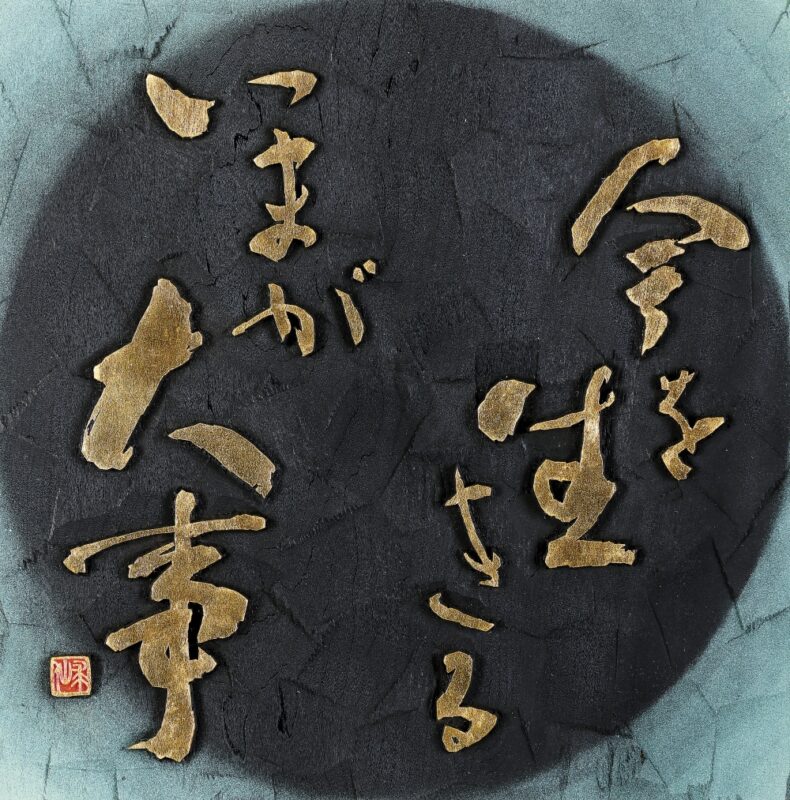 今を
生きる
いまが
大事